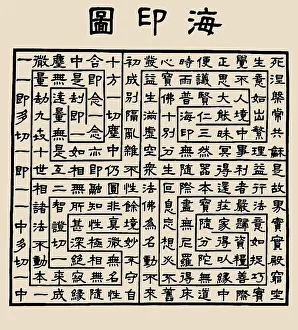 海印圖
死涅槃常共和是故界實寶殿窮坐
生意如出繁理益行法意如捉巧實
覺不人境中事利者嚴歸資糧善際
正思大能昧冥得還莊家得以緣中
便議賢仁三然器本寶隨分陀無道
時雨普海印無隨際盡無尼羅得床
心寶佛十別分生叵息妄想必不舊
發益生滿虛空衆法佛為名動不來
初成別隔亂雜不性餘境妙不守自
十方一切塵中仍圓非真微無名性
中含即念一念亦即融知性極相無隨
塵無是劫即一如相無所甚深絕寂緣
微量遠量無是互二智證切一來成
一劫九世十世相諸法不動本一
一一即多切一即一一中多切一中